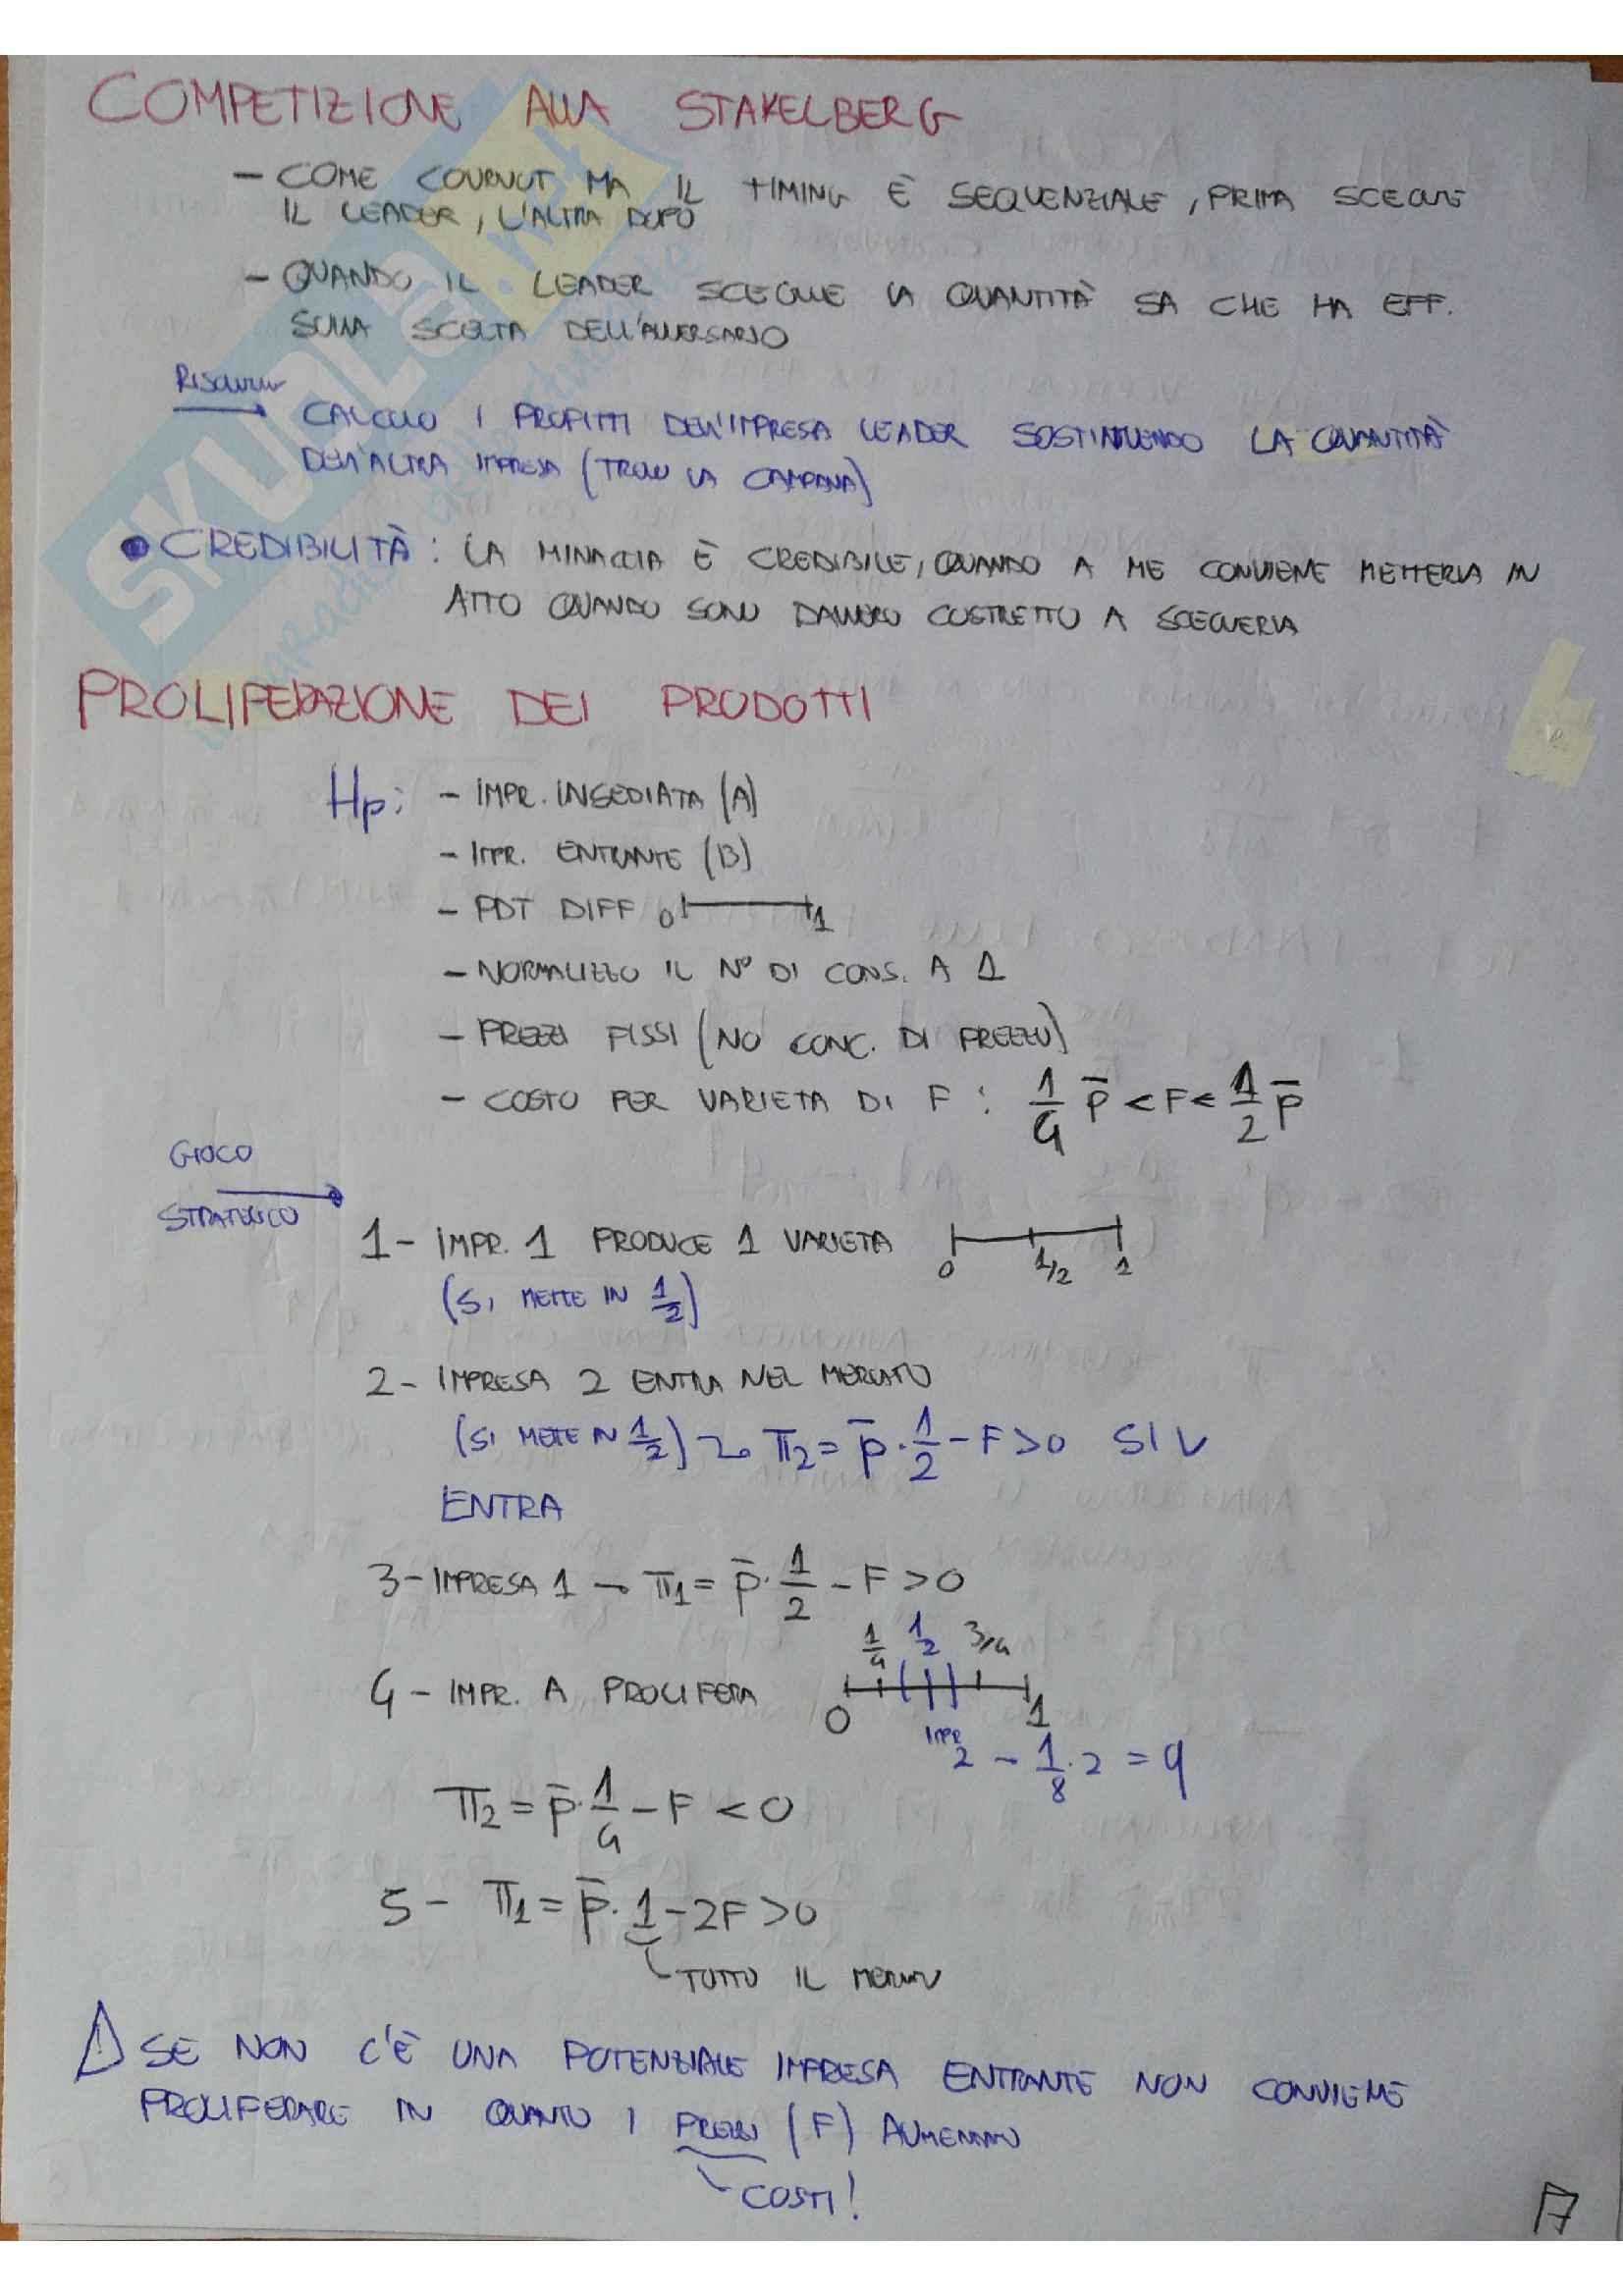 COMPETIZIONE ALLA STAKELBERG
- COME COURNOT MA IL TIMING È SEQUENZIALE, PRIMA SCEGLIE
IL LEADER, L'ALTRA DOPO
- QUANDO IL LEADER SCEGLIE LA QUANTITÀ SA CHE HA EFF.
SULLA SCELTA DELL'AVVERSARIO
CALCOLO I PROFITTI DELL'IMPRESA LEADER SOSTITUENDO LA QUANTITÀ
DELL'ALTRA IMPRESA (TROVO LA CAMPANA)
• CREDIBILITÀ: LA MINACCIA È CREDIBILE, QUANDO A ME CONVIENE METTERLA IN
ATTO QUANDO SONO DAVVERO COSTRETTO A SCEGLIERLA
PROLIFERAZIONE DEI PRODOTTI
Hp: - IMPR. INSEDIATA (A)
- IMPR. ENTRANTE (B)
- PDT DIFF 0 1
- NORMALIZZO IL N° DI CONS. A 1
- PREZZI FISSI (NO CONC. DI PREZZO)
- COSTO PER VARIETA DI F: 1/4 p̄ < F < 1/2 p̄
GIOCO
STRATEGICO
1- IMPR. 1 PRODUCE 1 VARIETA 0 1/2 1
(SI METTE IN 1/2)
2- IMPRESA 2 ENTRA NEL MERCATO
(SI METTE IN 1/2) → π2 = p̄ · 1/2 - F > 0 SI V
ENTRA
3- IMPRESA 1 → π1 = p̄ · 1/2 - F > 0
1/4 1/2 3/4
4- IMPR. A PROLIFERA 0 1
IMPR 2 - 1/8 · 2 = q
π2 = p̄ · 1/4 - F < 0
5- π1 = p̄ · 1 - 2F > 0
TUTTO IL MERCATO
SE NON C'È UNA POTENZIALE IMPRESA ENTRANTE NON CONVIENE
PROLIFERARE IN QUANTO I PREZZI (F) AUMENTANO
COSTI!
SKUOLA.net